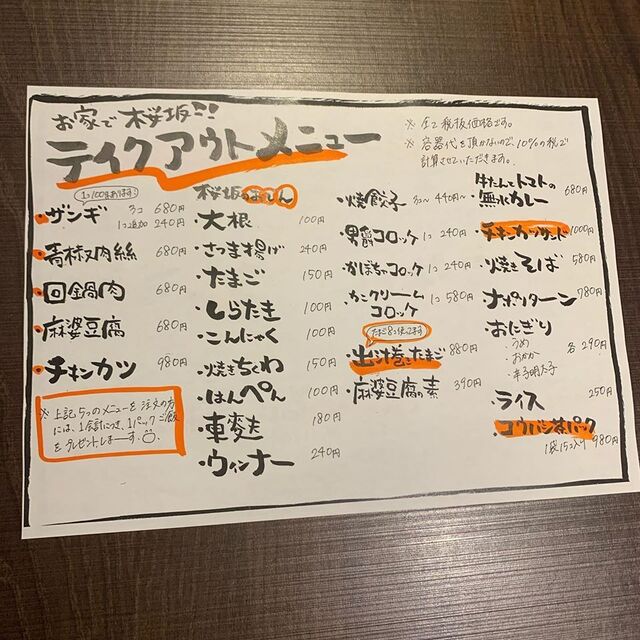 お家で桜坂!!
テイクアウトメニュー
※ 全て税抜価格です。
※ 容器代を頂かないので、10%の税で
計算させていただきます。
1コ100gあります!
・ザンギ 3コ 680円
1コ追加 240円
・青椒肉絲 680円
・回鍋肉 680円
・麻婆豆腐 680円
・チキンカツ 980円
※ 上記5つのメニューを注文の方
には、1会計につき、1パックご飯
をプレゼントしまーす。
桜坂のおでん
・大根 100円
・さつま揚げ 240円
・たまご 150円
・しらたき 100円
・こんにゃく 100円
・焼きちくわ 150円
・はんぺん 100円
・車麩 180円
・ウィンナー 240円
・焼餃子 3コ〜 440円〜
・男爵コロッケ 1コ 240円
・かぼちゃコロッケ 1コ 240円
・カニクリーム
コロッケ 1コ 580円
たまご8コ使ってます
・出汁巻きたまご 880円
・麻婆豆腐の素 390円
・牛たんとトマトの
無水カレー 680円
・チキンカツサンド 1000円
・焼きそば 580円
・ナポリターン 780円
・おにぎり
・うめ
・おかか 各290円
・辛子明太子
・ライス 250円
・ゴウバン茶パック
1袋15コ入り 980円